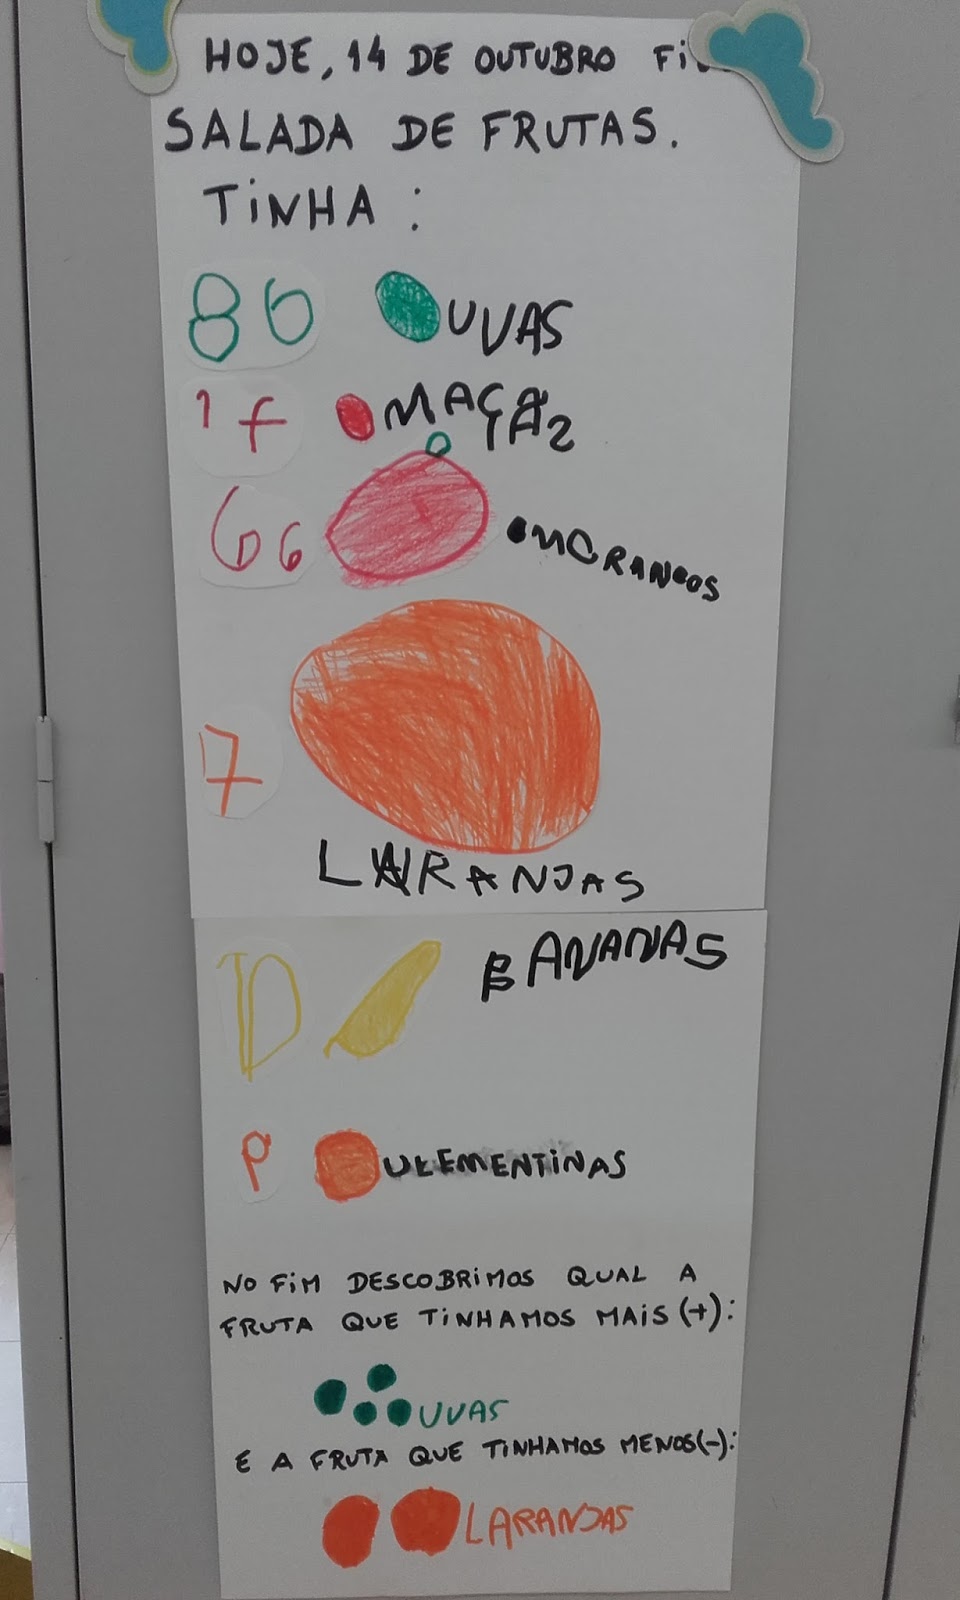 HOJE, 14 DE OUTUBRO
SALADA DE FRUTAS.
TINHA:
86 UVAS
17 MAÇÃS
66 MORANGOS
7
LARANJAS
10 BANANAS
9 CLEMENTINAS
NO FIM DESCOBRIMOS QUAL A
FRUTA QUE TINHAMOS MAIS (+):
UVAS
E A FRUTA QUE TINHAMOS MENOS(-):
LARANJAS